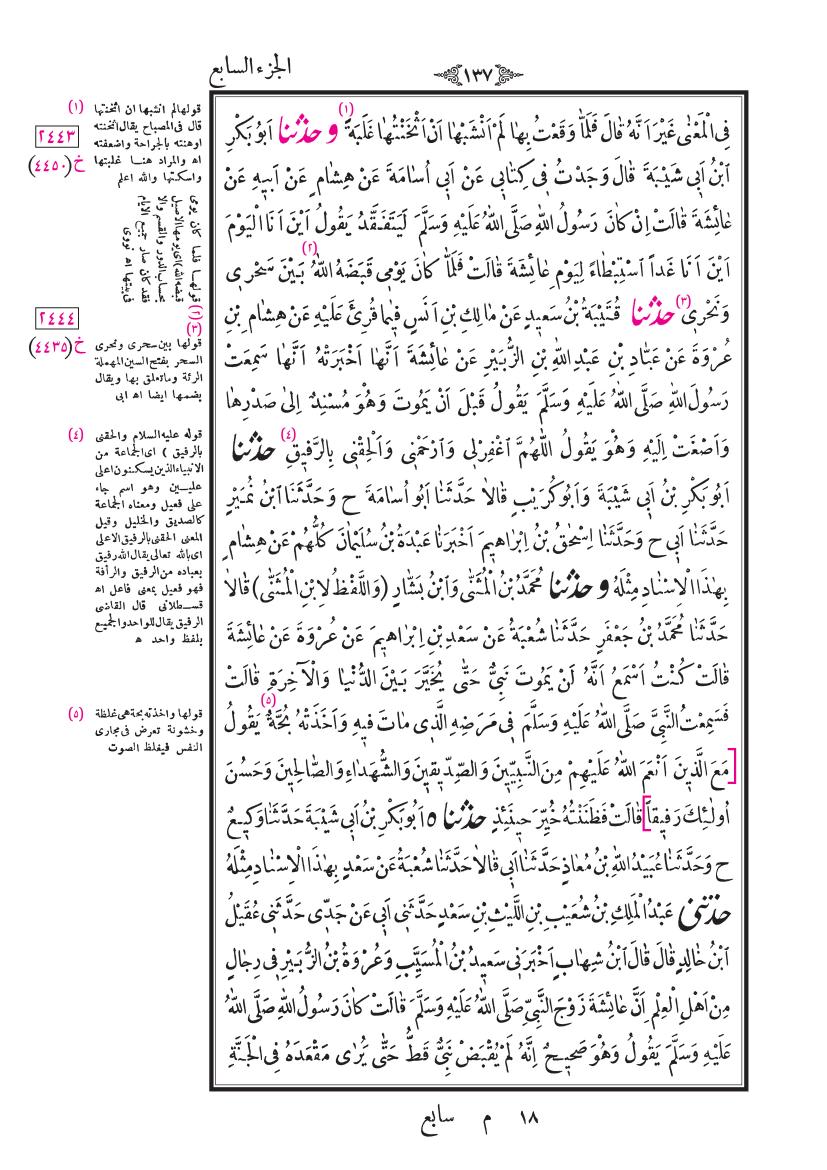 الجزء السابع
١٣٧
فِى الْمَعْنٰى غَيْرَ اَنَّهُ قَالَ فَلَمَّا وَقَعْتُ بِهَا لَمْ اَنْشَبْهَا اَنْ اَثْخَنْتُهَا غَلَبَةً (١) و حدثنا اَبُو بَكْرِ
ابْنُ اَبِى شَيْبَةَ قَالَ وَجَدْتُ فِى كِتَابِى عَنْ اَبِى اُسَامَةَ عَنْ هِشَامٍ عَنْ اَبِيهِ عَنْ
عَائِشَةَ قَالَتْ اِنْ كَانَ رَسُولُ اللهِ صَلَّى اللهُ عَلَيْهِ وَسَلَّمَ لَيَتَفَقَّدُ يَقُولُ اَيْنَ اَنَا الْيَوْمَ
اَيْنَ اَنَا غَداً اسْتِبْطَاءً لِيَوْمِ عَائِشَةَ قَالَتْ فَلَمَّا كَانَ يَوْمِى قَبَضَهُ اللهُ (٢) بَيْنَ سَحْرِى
وَنَحْرِى (٣) حدثنا قُتَيْبَةُ بْنُ سَعِيدٍ عَنْ مَالِكِ بْنِ اَنَسٍ فِيمَا قُرِئَ عَلَيْهِ عَنْ هِشَامِ بْنِ
عُرْوَةَ عَنْ عَبَّادِ بْنِ عَبْدِ اللهِ بْنِ الزُّبَيْرِ عَنْ عَائِشَةَ اَنَّهَا اَخْبَرَتْهُ اَنَّهَا سَمِعَتْ
رَسُولَ اللهِ صَلَّى اللهُ عَلَيْهِ وَسَلَّمَ يَقُولُ قَبْلَ اَنْ يَمُوتَ وَهُوَ مُسْنِدٌ اِلىٰ صَدْرِهَا
وَاَصْغَتْ اِلَيْهِ وَهُوَ يَقُولُ اللّٰهُمَّ اغْفِرْلِى وَارْحَمْنِى وَاَلْحِقْنِى بِالرَّفِيقِ (٤) حدثنا
اَبُو بَكْرِ بْنُ اَبِى شَيْبَةَ وَاَبُو كُرَيْبٍ قَالَا حَدَّثَنَا اَبُو اُسَامَةَ ح وَحَدَّثَنَا ابْنُ نُمَيْرٍ
حَدَّثَنَا اَبِى ح وَحَدَّثَنَا اِسْحٰقُ بْنُ اِبْرَاهِيمَ اَخْبَرَنَا عَبْدَةُ بْنُ سُلَيْمَانَ كُلُّهُمْ عَنْ هِشَامٍ
بِهٰذَا الْاِسْنَادِ مِثْلَهُ و حدثنا مُحَمَّدُ بْنُ الْمُثَنّٰى وَابْنُ بَشَّارٍ (وَاللَّفْظُ لِابْنِ الْمُثَنّٰى) قَالَا
حَدَّثَنَا مُحَمَّدُ بْنُ جَعْفَرٍ حَدَّثَنَا شُعْبَةُ عَنْ سَعْدِ بْنِ اِبْرَاهِيمَ عَنْ عُرْوَةَ عَنْ عَائِشَةَ
قَالَتْ كُنْتُ اَسْمَعُ اَنَّهُ لَنْ يَمُوتَ نَبِىٌّ حَتّٰى يُخَيَّرَ بَيْنَ الدُّنْيَا وَالْآخِرَةِ قَالَتْ
فَسَمِعْتُ النَّبِىَّ صَلَّى اللهُ عَلَيْهِ وَسَلَّمَ فِى مَرَضِهِ الَّذِى مَاتَ فِيهِ وَاَخَذَتْهُ بُحَّةٌ (٥) يَقُولُ
[مَعَ الَّذِينَ اَنْعَمَ اللهُ عَلَيْهِمْ مِنَ النَّبِيِّينَ وَالصِّدِّيقِينَ وَالشُّهَدَاءِ وَالصَّالِحِينَ وَحَسُنَ
اُولٰئِكَ رَفِيقاً] قَالَتْ فَظَنَنْتُهُ خُيِّرَ حِينَئِذٍ حدثنا ٥ اَبُو بَكْرِ بْنُ اَبِى شَيْبَةَ حَدَّثَنَا وَكِيعٌ
ح وَحَدَّثَنَا عُبَيْدُ اللهِ بْنُ مُعَاذٍ حَدَّثَنَا اَبِى قَالَا حَدَّثَنَا شُعْبَةُ عَنْ سَعْدٍ بِهٰذَا الْاِسْنَادِ مِثْلَهُ
حدثنى عَبْدُ الْمَلِكِ بْنُ شُعَيْبِ بْنِ اللَّيْثِ بْنِ سَعْدٍ حَدَّثَنِى اَبِى عَنْ جَدِّى حَدَّثَنِى عُقَيْلُ
ابْنُ خَالِدٍ قَالَ قَالَ ابْنُ شِهَابٍ اَخْبَرَنِى سَعِيدُ بْنُ الْمُسَيَّبِ وَعُرْوَةُ بْنُ الزُّبَيْرِ فِى رِجَالٍ
مِنْ اَهْلِ الْعِلْمِ اِنَّ عَائِشَةَ زَوْجَ النَّبِىِّ صَلَّى اللهُ عَلَيْهِ وَسَلَّمَ قَالَتْ كَانَ رَسُولُ اللهِ صَلَّى اللهُ
عَلَيْهِ وَسَلَّمَ يَقُولُ وَهُوَ صَحِيحٌ اِنَّهُ لَمْ يُقْبَضْ نَبِىٌّ قَطُّ حَتّٰى يُرٰى مَقْعَدَهُ فِى الْجَنَّةِ
(١) قولها لم انشبها ان اثخنتها
قال فى المصباح يقال اثخنته
٢٤٤٣
اوهنته بالجراحة واضعفته
اه والمراد هنا غلبتها
خ (٤٤٥٠)
واسكتتها والله اعلم
(٢) قولها فلما كان يومى
قبضه الله اى يومها الاصيل
بحساب الدور والقسم والا
فقد كان صار جميع الايام
فى بيتها اه نووى
٢٤٤٤
(٣)
قولها بين سحرى ونحرى
خ (٤٤٣٥)
السحر بفتح السين المهملة
الرئة وما تعلق بها ويقال
بضمها ايضا اه ابى
(٤) قوله عليه السلام والحقنى
بالرفيق ) اى الجماعة من
الانبياء الذين يسكنون اعلى
عليين وهو اسم جاء
على فعيل ومعناه الجماعة
كالصديق والخليل وقيل
المعنى الحقنى بالرفيق الاعلى
اى بالله تعالى يقال الله رفيق
بعباده من الرفيق والرأفة
فهو فعيل بمعنى فاعل اه
قسطلانى قال القاضى
الرفيق يقال للواحد والجميع
بلفظ واحد اه
(٥) قولها واخذته بحة هى غلظة
وخشونة تعرض فى مجارى
النفس فيغلظ الصوت
١٨ م سابع